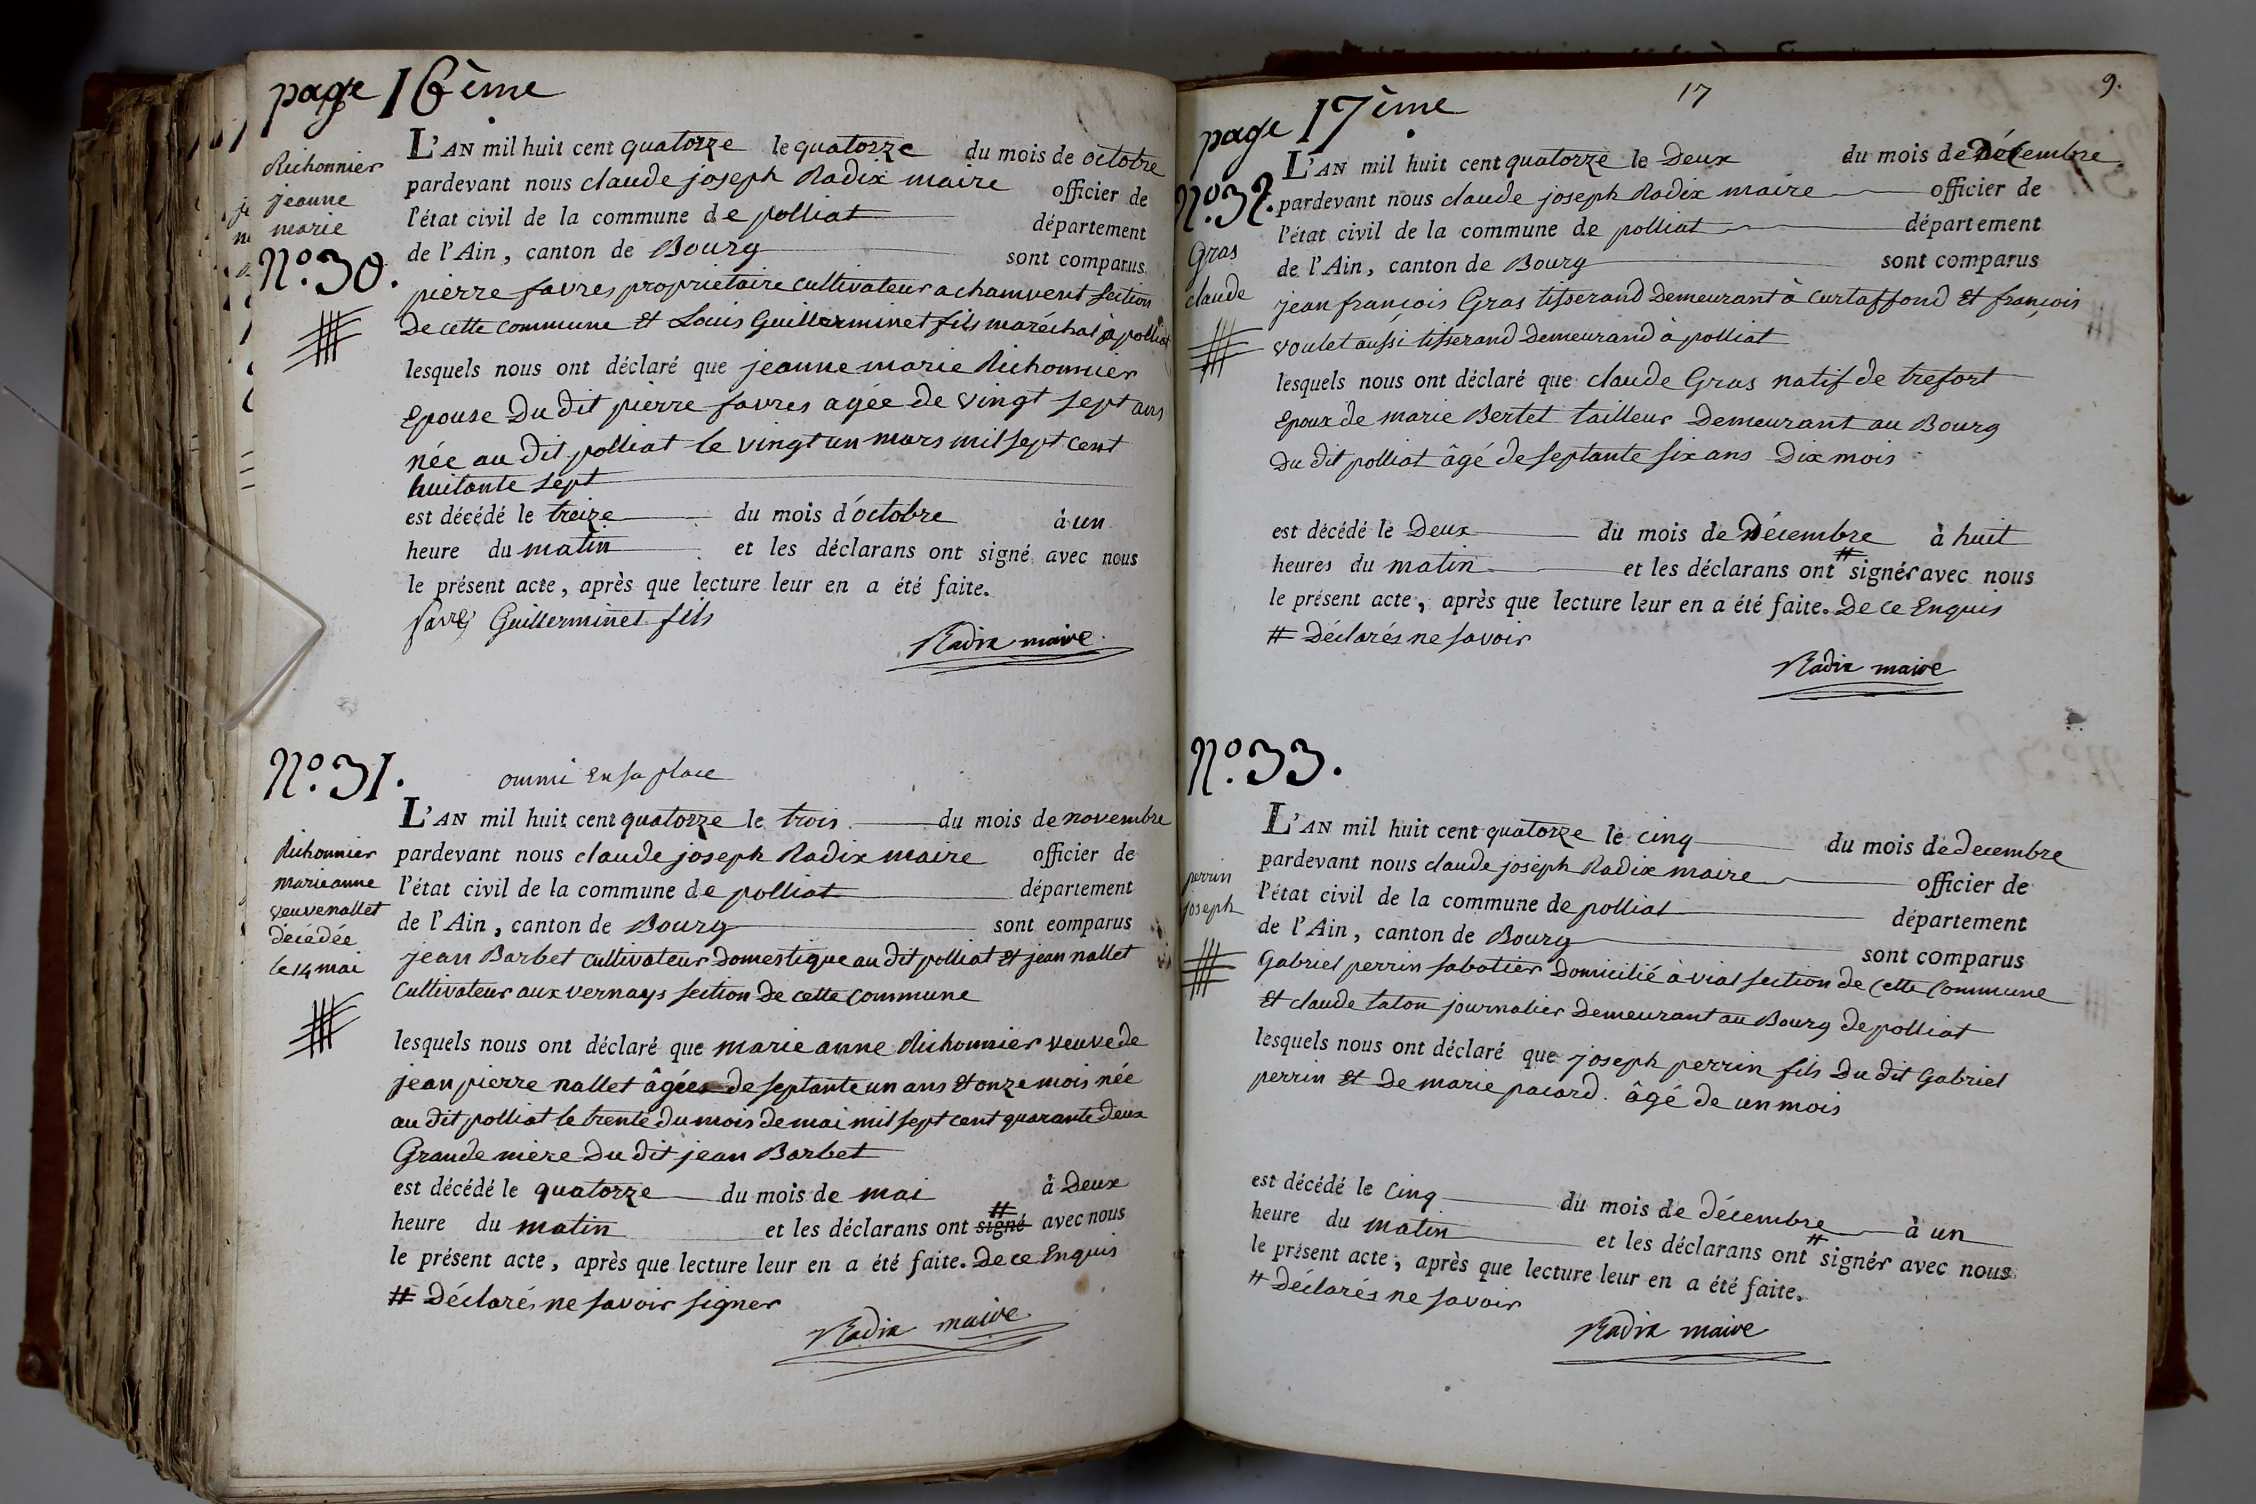 page 16ème
Richonnier
jeanne
marie
N.º 30.
L'AN mil huit cent quatorze le quatorze du mois de octobre
pardevant nous claude joseph Radix maire officier de
l'état civil de la commune de polliat département
de l'Ain, canton de Bourg sont comparus
pierre favres propriétaire cultivateur a chamvent section
De cette commune Et Louis Guillerminet fils maréchal à polliat
lesquels nous ont déclaré que jeanne marie Richonnier
Epouse Du dit pierre favres agée de vingt sept ans
née au dit polliat le vingt un mars mil sept cent
huitante sept
est décédé le treize du mois d'octobre à un
heure du matin et les déclarans ont signé avec nous
le présent acte, après que lecture leur en a été faite.
favre Guillerminet fils
Radix maire
N.º 31.
ommi En sa place
Richonnier
marieanne
veuve nallet
décédée
le 14 mai
L'AN mil huit cent quatorze le trois du mois de novembre
pardevant nous claude joseph Radix maire officier de
l'état civil de la commune de polliat département
de l'Ain, canton de Bourg sont comparus
jean Barbet cultivateur Domestique au dit polliat Et jean nallet
cultivateur aux vernays section De cette commune
lesquels nous ont déclaré que marie anne Richonnier veuve de
jean pierre nallet âgée de septante un ans Et onze mois née
au dit polliat le trente du mois de mai mil sept cent quarante deux
Grande mère Du dit jean Barbet
est décédé le quatorze du mois de mai à Deux
heure du matin et les déclarans ont # signé avec nous
le présent acte, après que lecture leur en a été faite. De ce Enquis
# Déclarés ne savoir signer
Radix maire
17
9.
page 17ème
N.º 32.
Gras
claude
L'AN mil huit cent quatorze le Deux du mois de Décembre
pardevant nous claude joseph Radix maire officier de
l'état civil de la commune de polliat département
de l'Ain, canton de Bourg sont comparus
jean françois Gras tisserand Demeurant à Curtaffond Et françois
voulet aussi tisserand Demeurand à polliat
lesquels nous ont déclaré que claude Gras natif de trefort
Epoux de marie Bertet tailleur Demeurant au Bourg
Du dit polliat âgé de septante six ans Dix mois
est décédé le Deux du mois de Décembre à huit
heures du matin et les déclarans ont # signér avec nous
le présent acte, après que lecture leur en a été faite. De ce Enquis
# Déclarés ne savoir
Radix maire
N.º 33.
perrin
joseph
L'AN mil huit cent quatorze le cinq du mois de decembre
pardevant nous claude joseph Radix maire officier de
l'état civil de la commune de polliat département
de l'Ain, canton de Bourg sont comparus
Gabriel perrin sabotier Domicilié à vial section de Cette Commune
Et claude taton journalier Demeurant au Bourg de polliat
lesquels nous ont déclaré que joseph perrin fils Du dit Gabriel
perrin Et De marie pacord. âgé de un mois
est décédé le Cinq du mois de décembre à un
heure du matin et les déclarans ont # signér avec nous
le présent acte, après que lecture leur en a été faite.
# Déclarés ne savoir
Radix maire